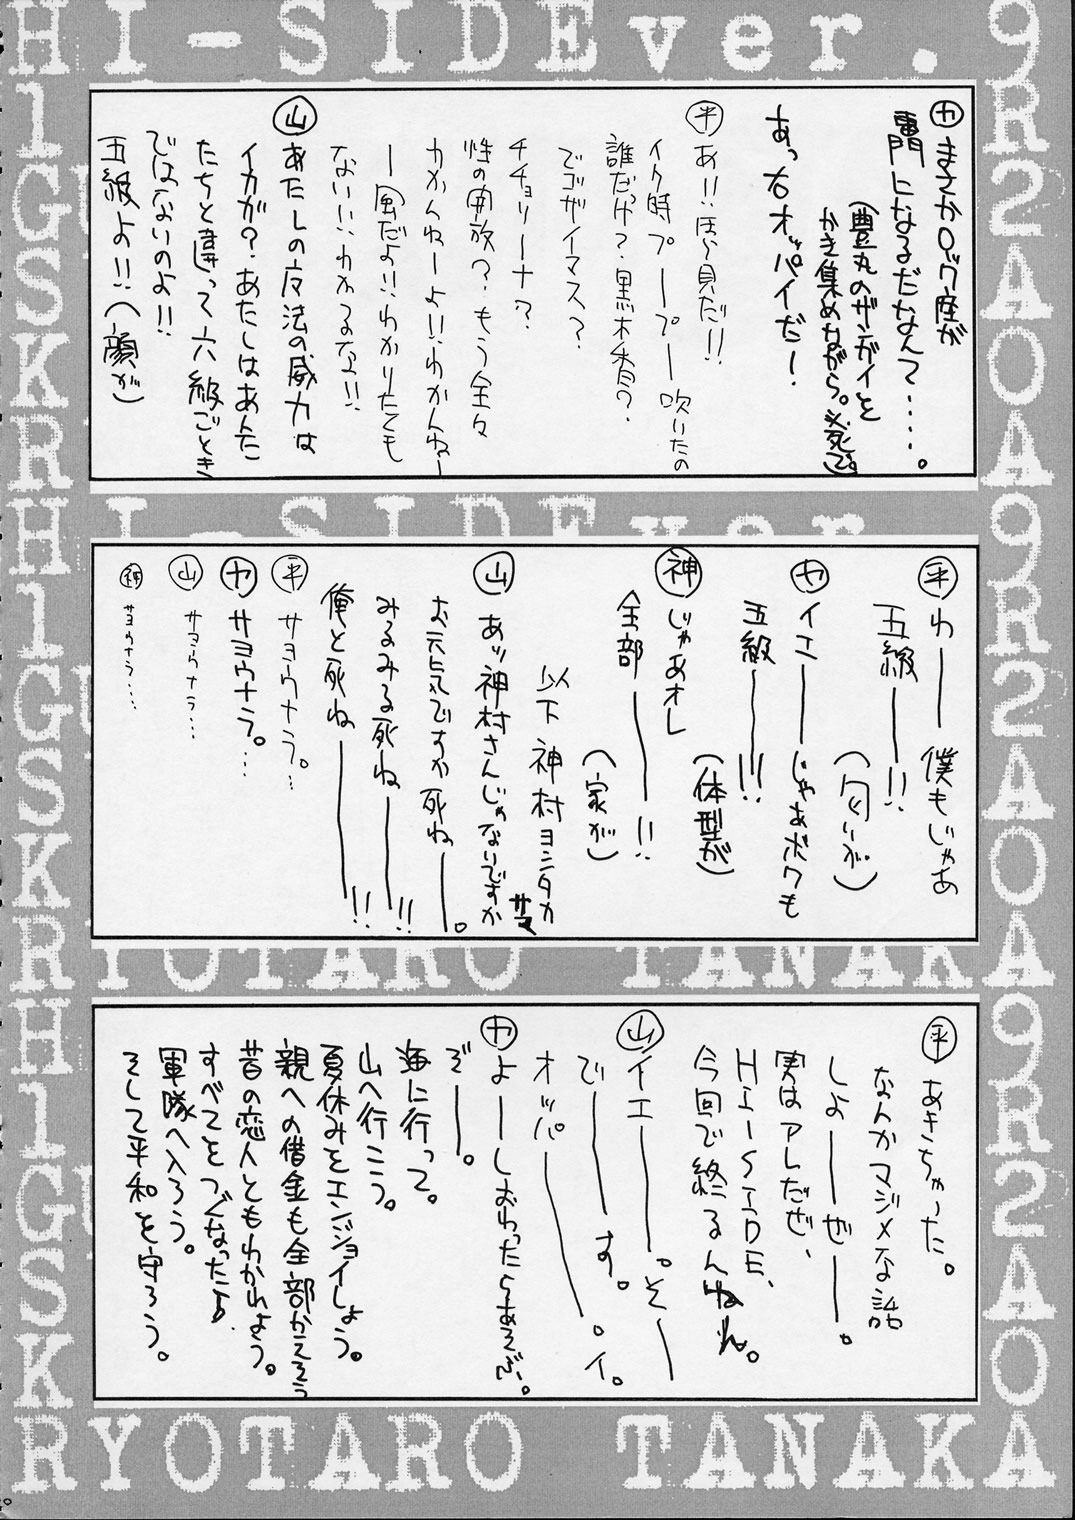 HI-SIDEver.
カ まさかロック座が
専門になるだなんて・・・・・。
(豊丸のザンガイを
かき集めながら。必死で。)
あっ右オッパイだー!
平 あ!!ほら貝だ!!
イク時プープー吹いたの
誰だっけ?黒木香?
でゴザイマス?
チチョリーナ?
性の開放?もう全々
わかんねーよ!!わかんねー
ー風だよ!!わかりたくも
ない!!わかるな!!
山 あたしの女法の威力は
イカが?あたしはあんた
たちと違って六級ごとき
ではないのよ!!
五級よ!!(顔が)
平 わー 僕もじゃあ
五級ー!!
(匂いが)
カ イエーじゃあボクも
五級ー!!!
(体型が)
神 じゃあオレ
全部ー!!
(家が)
以下神村ヨシタカサマ
山 あッ神村さんじゃないですか
お元気ですか死ねー。
みるみる死ねー!!
俺と死ねー!!
平 サヨウナラ。…
カ サヨウナラ。…
山 サヨウナラ…
神 サヨウナラ…
平 あきちゃった。
なんかマジメな話
しよーぜー。
実はアレだぜ、
HI-SIDE、
今回で終るんねん。
山 イエー。そー
でーす。
オッパー。イ。
カ よーしおわったらあそぶ。
ぞー。
海に行って。
山へ行こう。
夏休みをエンジョイしよう。
親への借金も全部かえそう
昔の恋人ともわかれよう。
すべてをつぐなったら
軍隊へ入ろう。
そして平和を守ろう。
RYOTARO TANAKA